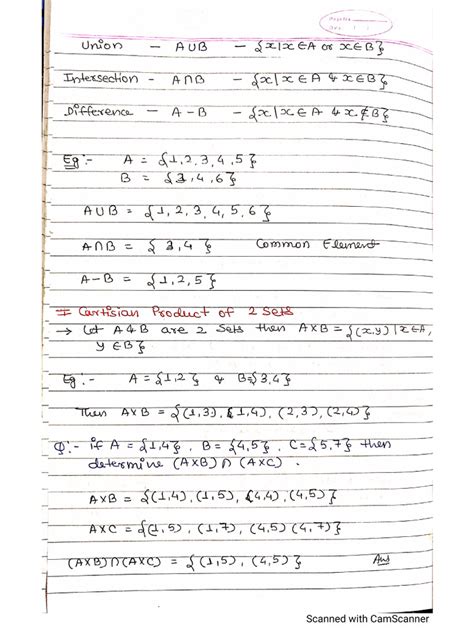 Union - A∪B - {x|x∈A or x∈B}
Intersection - A∩B - {x|x∈A & x∈B}
Difference - A-B - {x|x∈A & x∉B}
Eg:- A = {1,2,3,4,5}
B = {3,4,6}
A∪B = {1,2,3,4,5,6}
A∩B = {3,4} Common Element
A-B = {1,2,5}
I Cartisian Product of 2 Sets
→ Let A & B are 2 Sets then AxB = {(x,y)|x∈A,
y∈B}
Eg:- A={1,2} & B={3,4}
Then AxB = {(1,3), (1,4), (2,3), (2,4)}
Q:- if A = {1,4}, B = {4,5}, C={5,7} then
determine (AxB)∩(AxC).
AxB = {(1,4), (1,5), (4,4), (4,5)}
AxC = {(1,5), (1,7), (4,5) (4,7)}
(AxB)∩(AxC) = {(1,5), (4,5)} Ans
Scanned with CamScanner